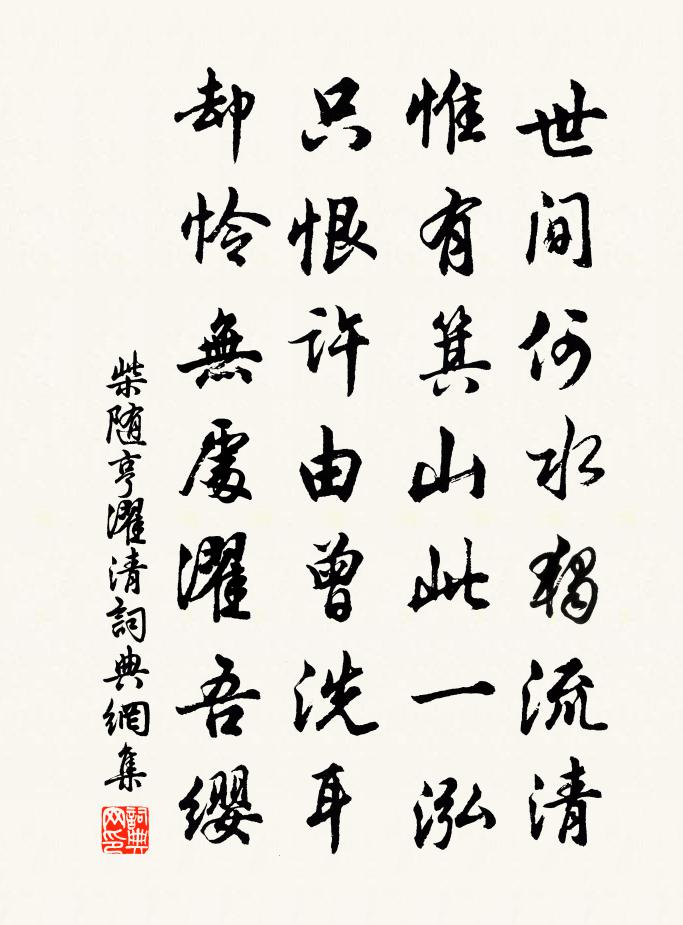 世間何水獨流清
惟有箕山此一泓
只恨許由曾洗耳
却怜無處濯吾缨
柴随亨濯清詞典網集
詞典网印